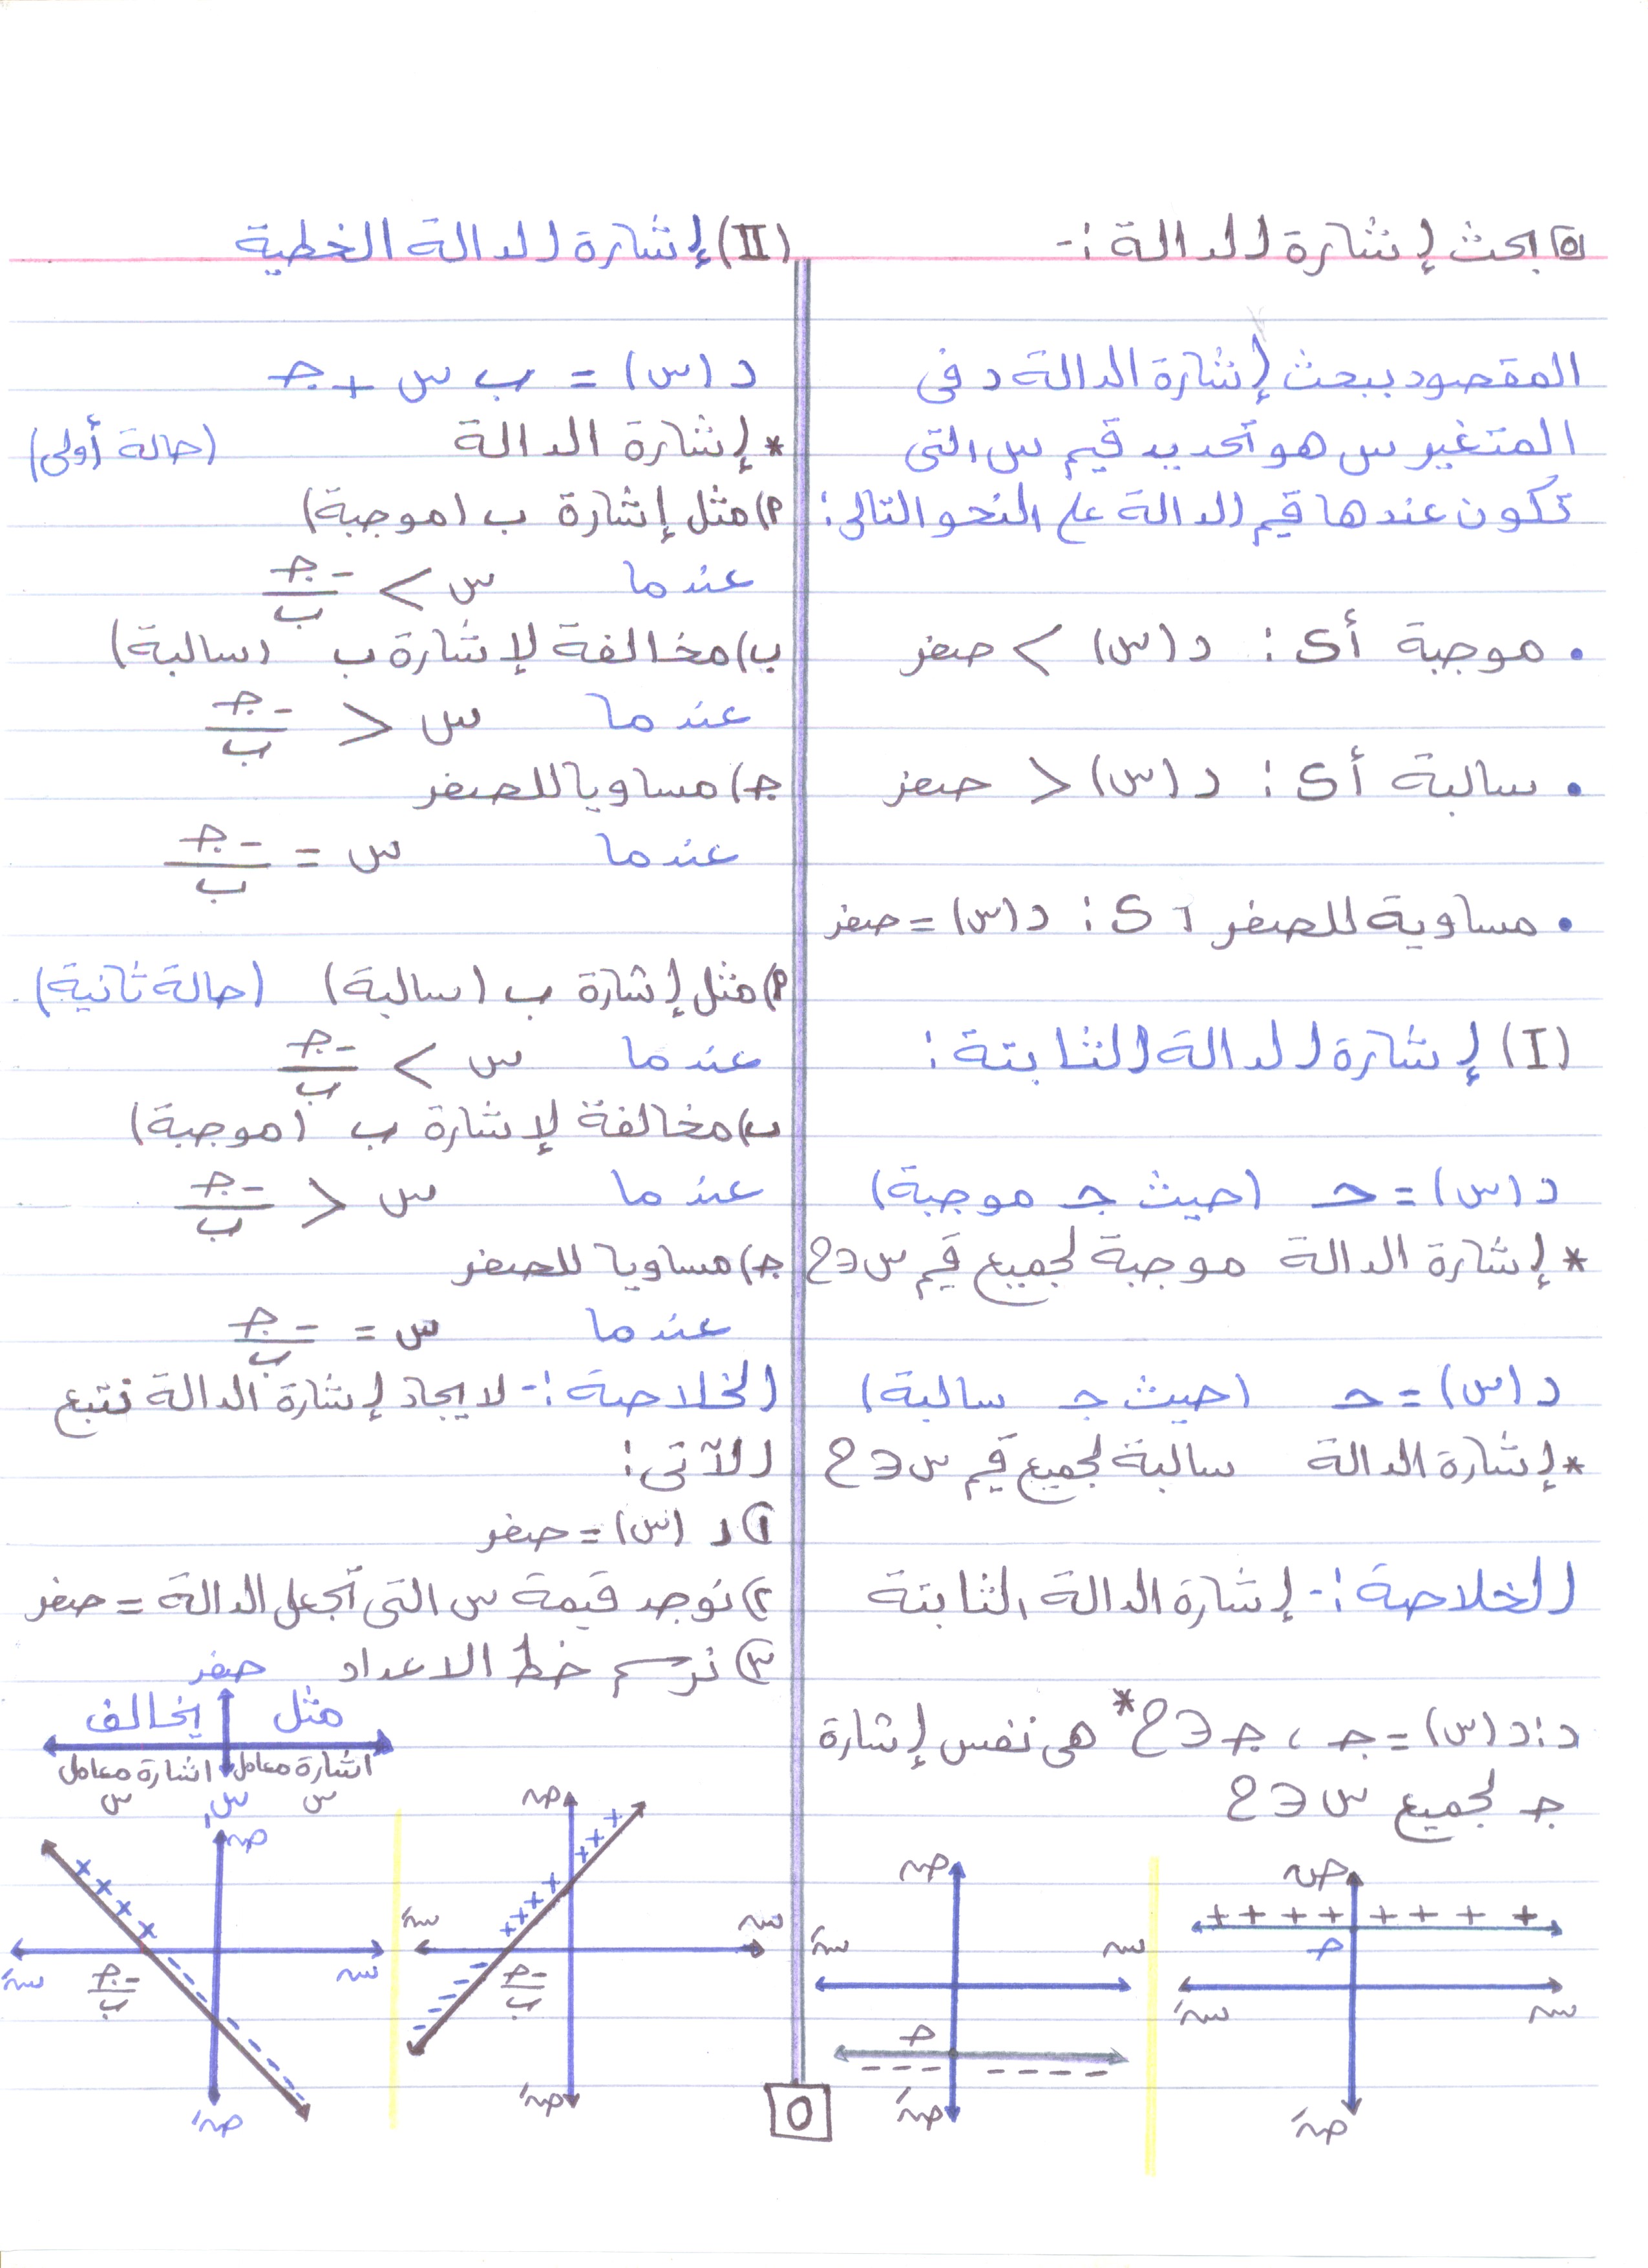 ٥ ابحث إشارة الدالة :-
المقصود ببحث إشارة الدالة د فى
المتغير س هو تحديد قيم س التى
تكون عندها قيم الدالة على النحو التالى :
• موجبة أى : د (س) > صفر
• سالبة أى : د (س) < صفر
• مساوية للصفر أى : د (س) = صفر
(I) إشارة الدالة الثابتة :
د (س) = حـ (حيث جـ موجبة)
* إشارة الدالة موجبة لجميع قيم س ∈ ح
د (س) = حـ (حيث جـ سالبة)
* إشارة الدالة سالبة لجميع قيم س ∈ ح
الخلاصة :- إشارة الدالة الثابتة
د : د (س) = جـ ، جـ ∈ ح* هى نفس إشارة
جـ لجميع س ∈ ح
صَ
+ + + + + + + +
جـ
سَ س
صَ
ص
سَ س
جـ
- - - - - - -
صَ
(II) إشارة الدالة الخطية
د (س) = ب س + جـ
* إشارة الدالة (حالة أولى)
أ) مثل إشارة ب (موجبة)
عندما س > -جـ/ب
ب) مخالفة لإشارة ب (سالبة)
عندما س < -جـ/ب
جـ) مساويا للصفر
عندما س = -جـ/ب
أ) مثل إشارة ب (سالبة) (حالة ثانية)
عندما س > -جـ/ب
ب) مخالفة لإشارة ب (موجبة)
عندما س < -جـ/ب
جـ) مساويا للصفر
عندما س = -جـ/ب
الخلاصة :- لايجاد إشارة الدالة نتبع
الآتى :
① د (س) = صفر
٢) نوجد قيمة س التى تجعل الدالة = صفر
③ نرسم خط الاعداد صفر
مثل يخالف
اشارة معامل اشارة معامل
س س
ص
+ + + + + + +
سَ س
-جـ/ب
صَ
ص
× × × ×
سَ س
-جـ/ب
صَ
٥